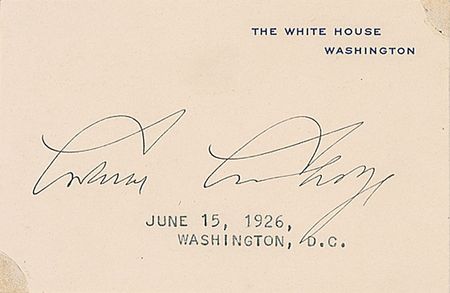 THE WHITE HOUSE
WASHINGTON
Calvin Coolidge
JUNE 15, 1926,
WASHINGTON, D.C.